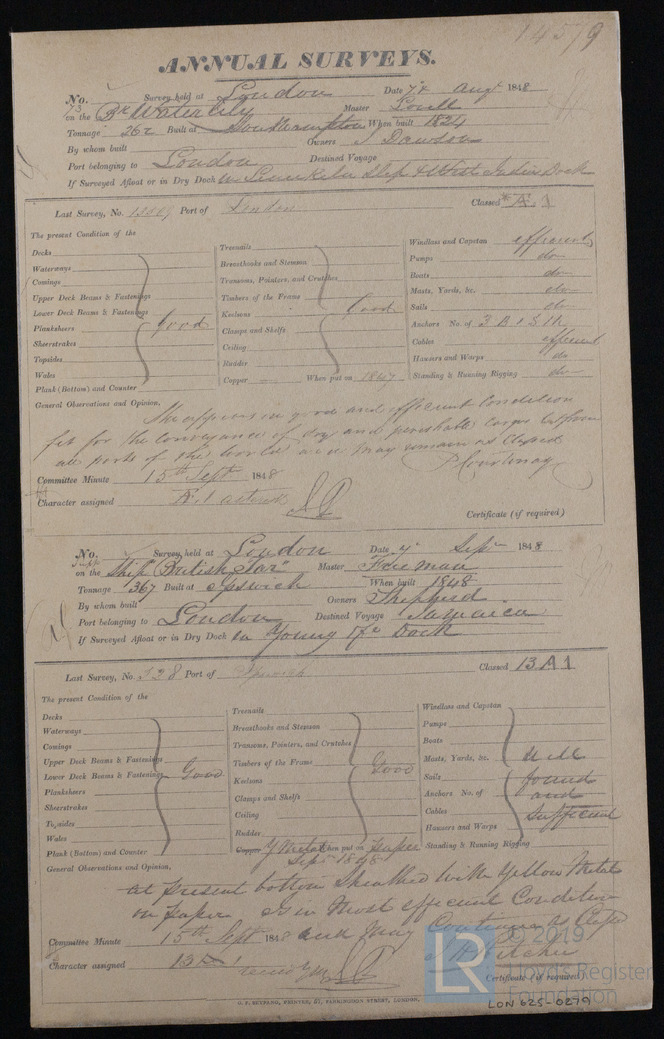 14579
ANNUAL SURVEYS.
No. Survey held at London Date 7th Augt 1848
73 on the Br Water Lily Master Lovell
Tonnage 262 Built at Southampton When built 1824
By whom built Owners J Dawson
Port belonging to London Destined Voyage
If Surveyed Afloat or in Dry Dock in Slip & West India Dock
Last Survey, No. Port of London Classed *Æ.1
The present Condition of the
Decks
Waterways
Comings
Upper Deck Beams & Fastenings
Lower Deck Beams & Fastenings
Planksheers Good
Sheerstrakes
Topsides
Wales
Plank (Bottom) and Counter
Treenails
Breasthooks and Stemson
Transoms, Pointers, and Crutches
Timbers of the Frame
Keelsons Good
Clamps and Shelfs
Ceiling
Rudder
Copper When put on 1847
Windlass and Capstan efficient
Pumps do
Boats do
Masts, Yards, &c. do
Sails do
Anchors No. of 3 B
Cables efficient
Hausers and Warps do
Standing & Running Rigging do
General Observations and Opinion,
She appears in good and efficient Condition
fit for the conveyance of dry and perishable cargoes to & from
all parts of the world and may remain as Classed
P Courtenay
Committee Minute 15th Sept 1848
Character assigned Æ.1
Certificate (if required)
No. Survey held at London Date 7 Sepr 1848
on the Ship "British Tar" Master Freeman
Tonnage 367 Built at Ipswich When built 1848
By whom built Owners Shepherd
Port belonging to London Destined Voyage Jamaica
If Surveyed Afloat or in Dry Dock in Young &c Dock
Last Survey, No. 328 Port of Ipswich Classed 13 A 1
The present Condition of the
Decks
Waterways
Comings
Upper Deck Beams & Fastenings
Lower Deck Beams & Fastenings Good
Planksheers
Sheerstrakes
Topsides
Wales
Plank (Bottom) and Counter
Treenails
Breasthooks and Stemson
Transoms, Pointers, and Crutches
Timbers of the Frame Good
Keelsons
Clamps and Shelfs
Ceiling
Rudder
Copper Y Metal When put on paper
Sepr 1848
Windlass and Capstan
Pumps
Boats
Masts, Yards, &c. Well
Sails found
Anchors No. of and
Cables Sufficient
Hausers and Warps
Standing & Running Rigging
General Observations and Opinion,
at present bottom Sheathed with Yellow Metal
on paper is in Most efficient Condition
and may Continue as Class
Committee Minute 15th Sept 1848
Character assigned 13 A 1
Certificate (if required)
LR © 2019
Lloyd's Register
Foundation
G. F. SEYFANG, PRINTER, 57, FARRINGDON STREET, LONDON.
LON 625-0279